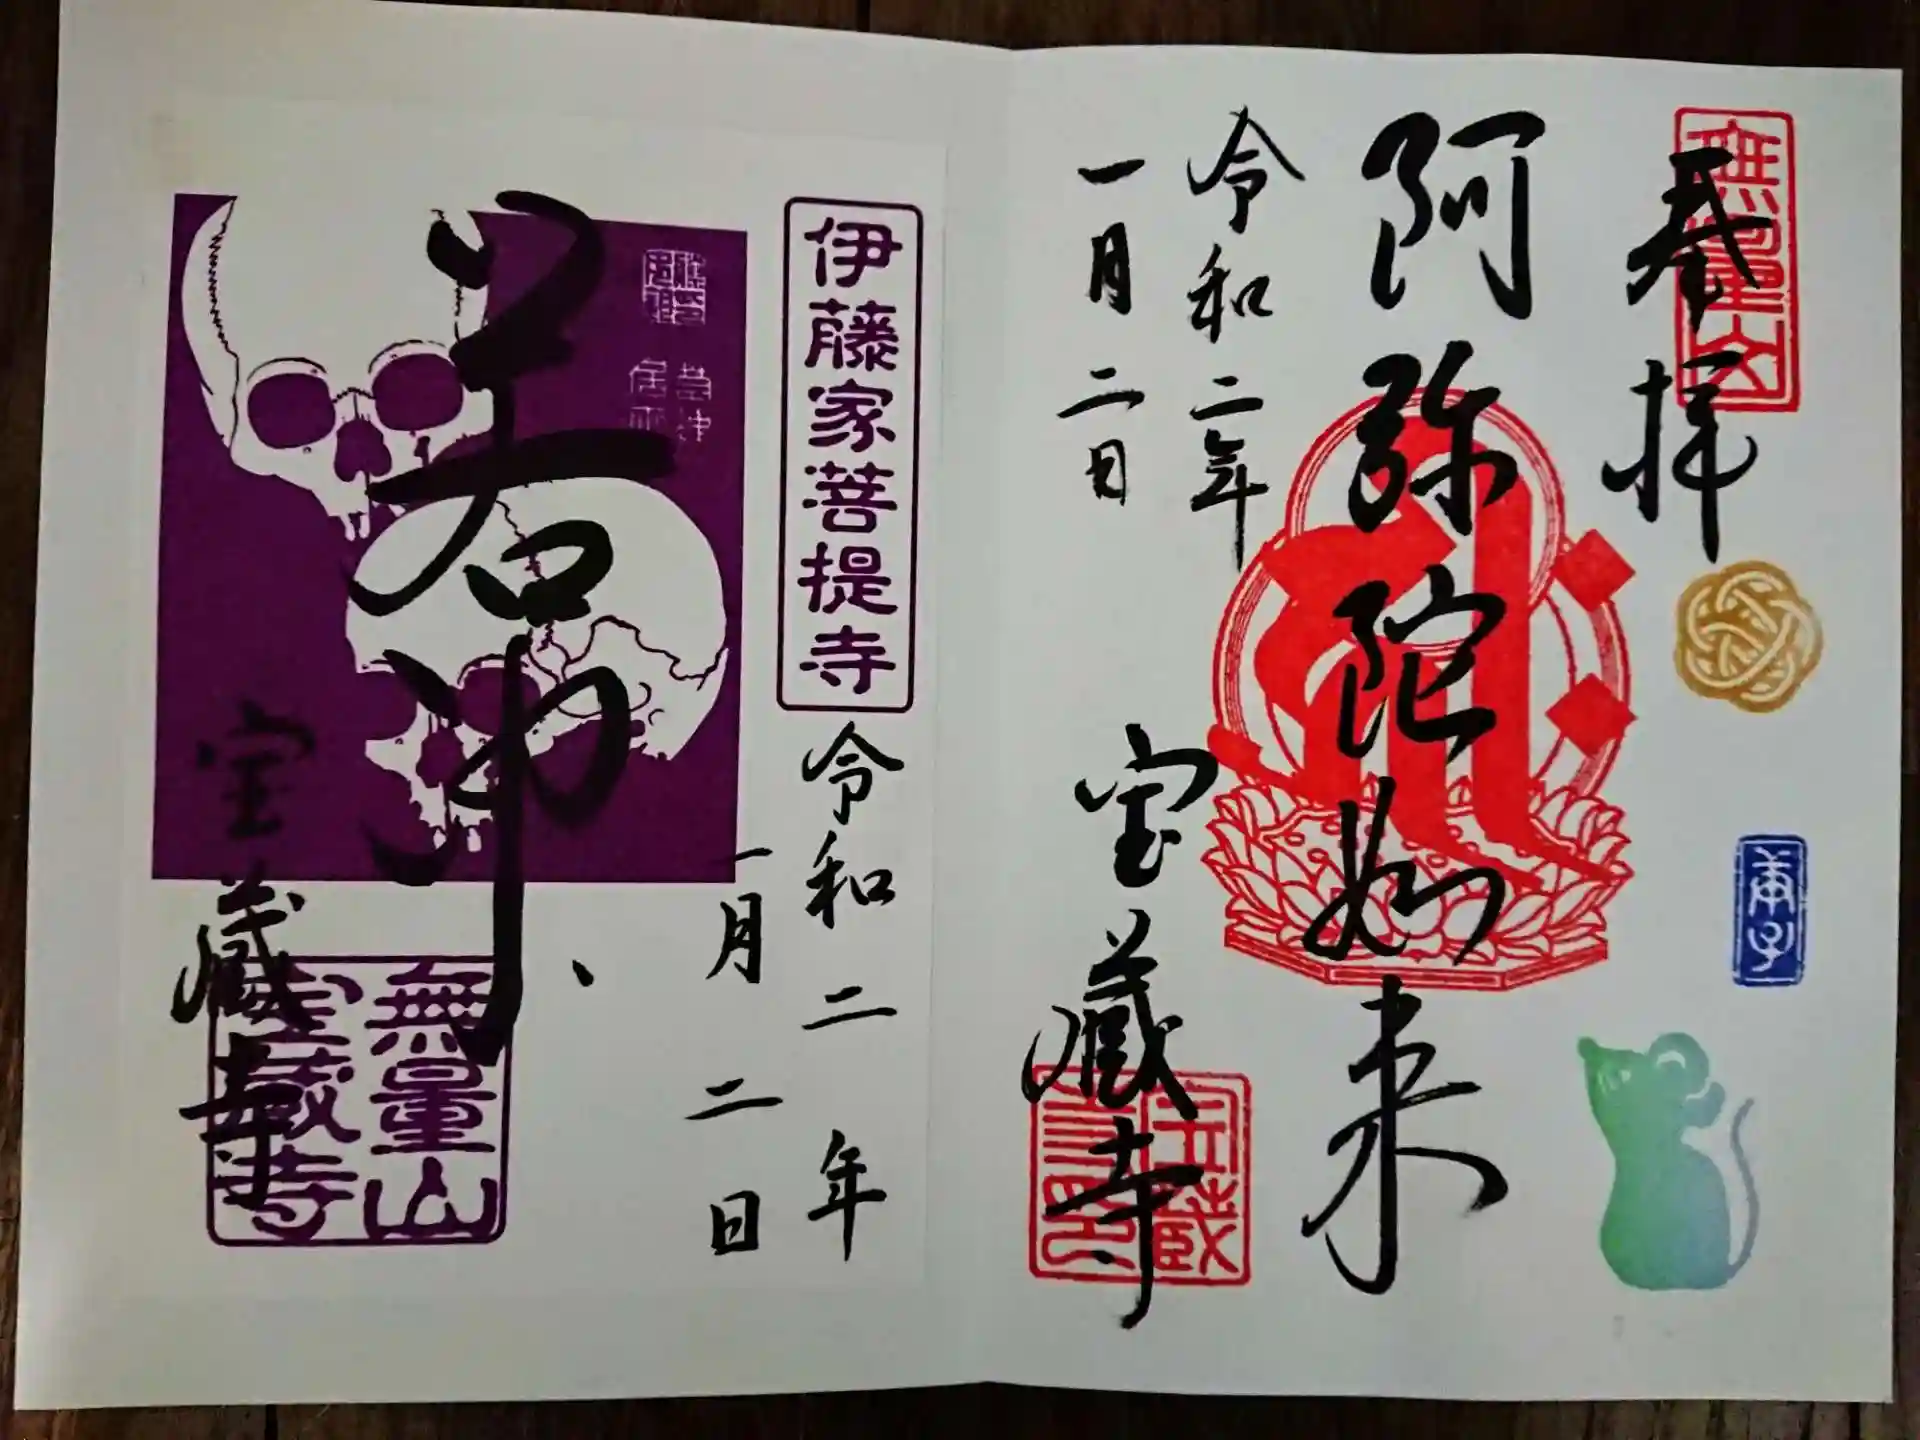 奉拝
無量山
阿弥陀如来
令和二年
一月二日
宝蔵寺
庚子
伊藤家菩提寺
令和二年
一月二日
若冲
宝蔵寺
無量山
宝蔵寺